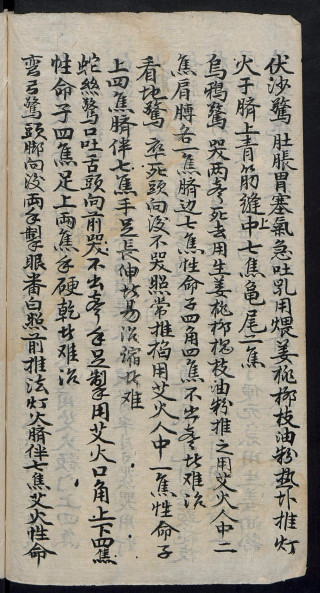 伏沙驚 肚脹胃塞氣急吐乳用煨姜桃柳枝油粉熱卜推灯
火于臍上青筋縫中上七焦龟尾二焦
烏鴉驚 哭两声死去用生姜桃柳槐枝油粉推之用艾火人中二
焦肩膊各一焦臍边七焦性命子四角四焦不出声此难治
看地驚 卒死頭向後不哭照常推掐用艾火人中一焦性命子
上四焦臍伴七焦手足長伸此易治縮此难
蛇絲驚口吐舌頭向前哭不出声手足掣用艾火口角上下四焦
性命子四焦足上兩焦手硬乾此难治
弯弓驚頭脚向後両手掣眼番白照前推法灯火臍伴七焦艾火性命